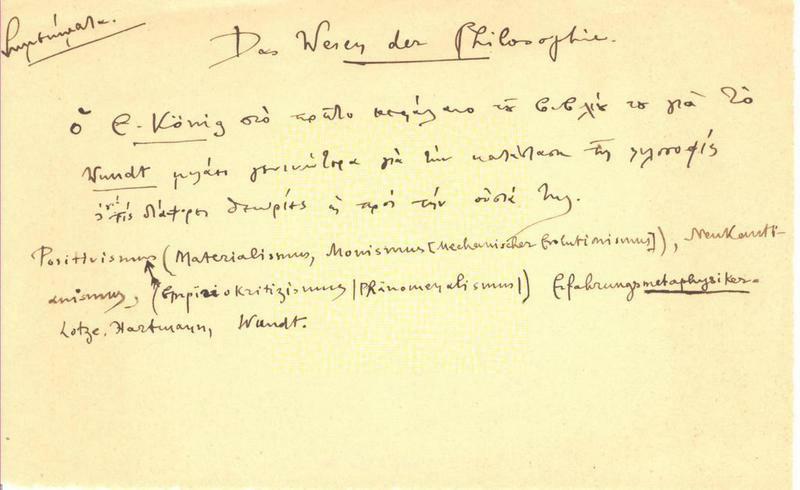 Das Wesen der Philosophie.
ὁ E. König στὸ πρῶτο κεφάλαιο τοῦ βιβλίου του γιὰ τὸ
Wundt μιλάει γενικώτερα γιὰ τὴν κατάσταση τῆς φιλοσοφίας
διάφορες θεωρίες ὡς πρὸς τὴν οὐσία της.
Positivismus (Materialismus, Monismus [Mechanischer Evolutionismus]), NeuKanti-
anismus, (Empiriokritizismus | Phänomenalismus|) Erfahrungsmetaphysiker.
Lotze, Hartmann, Wundt.